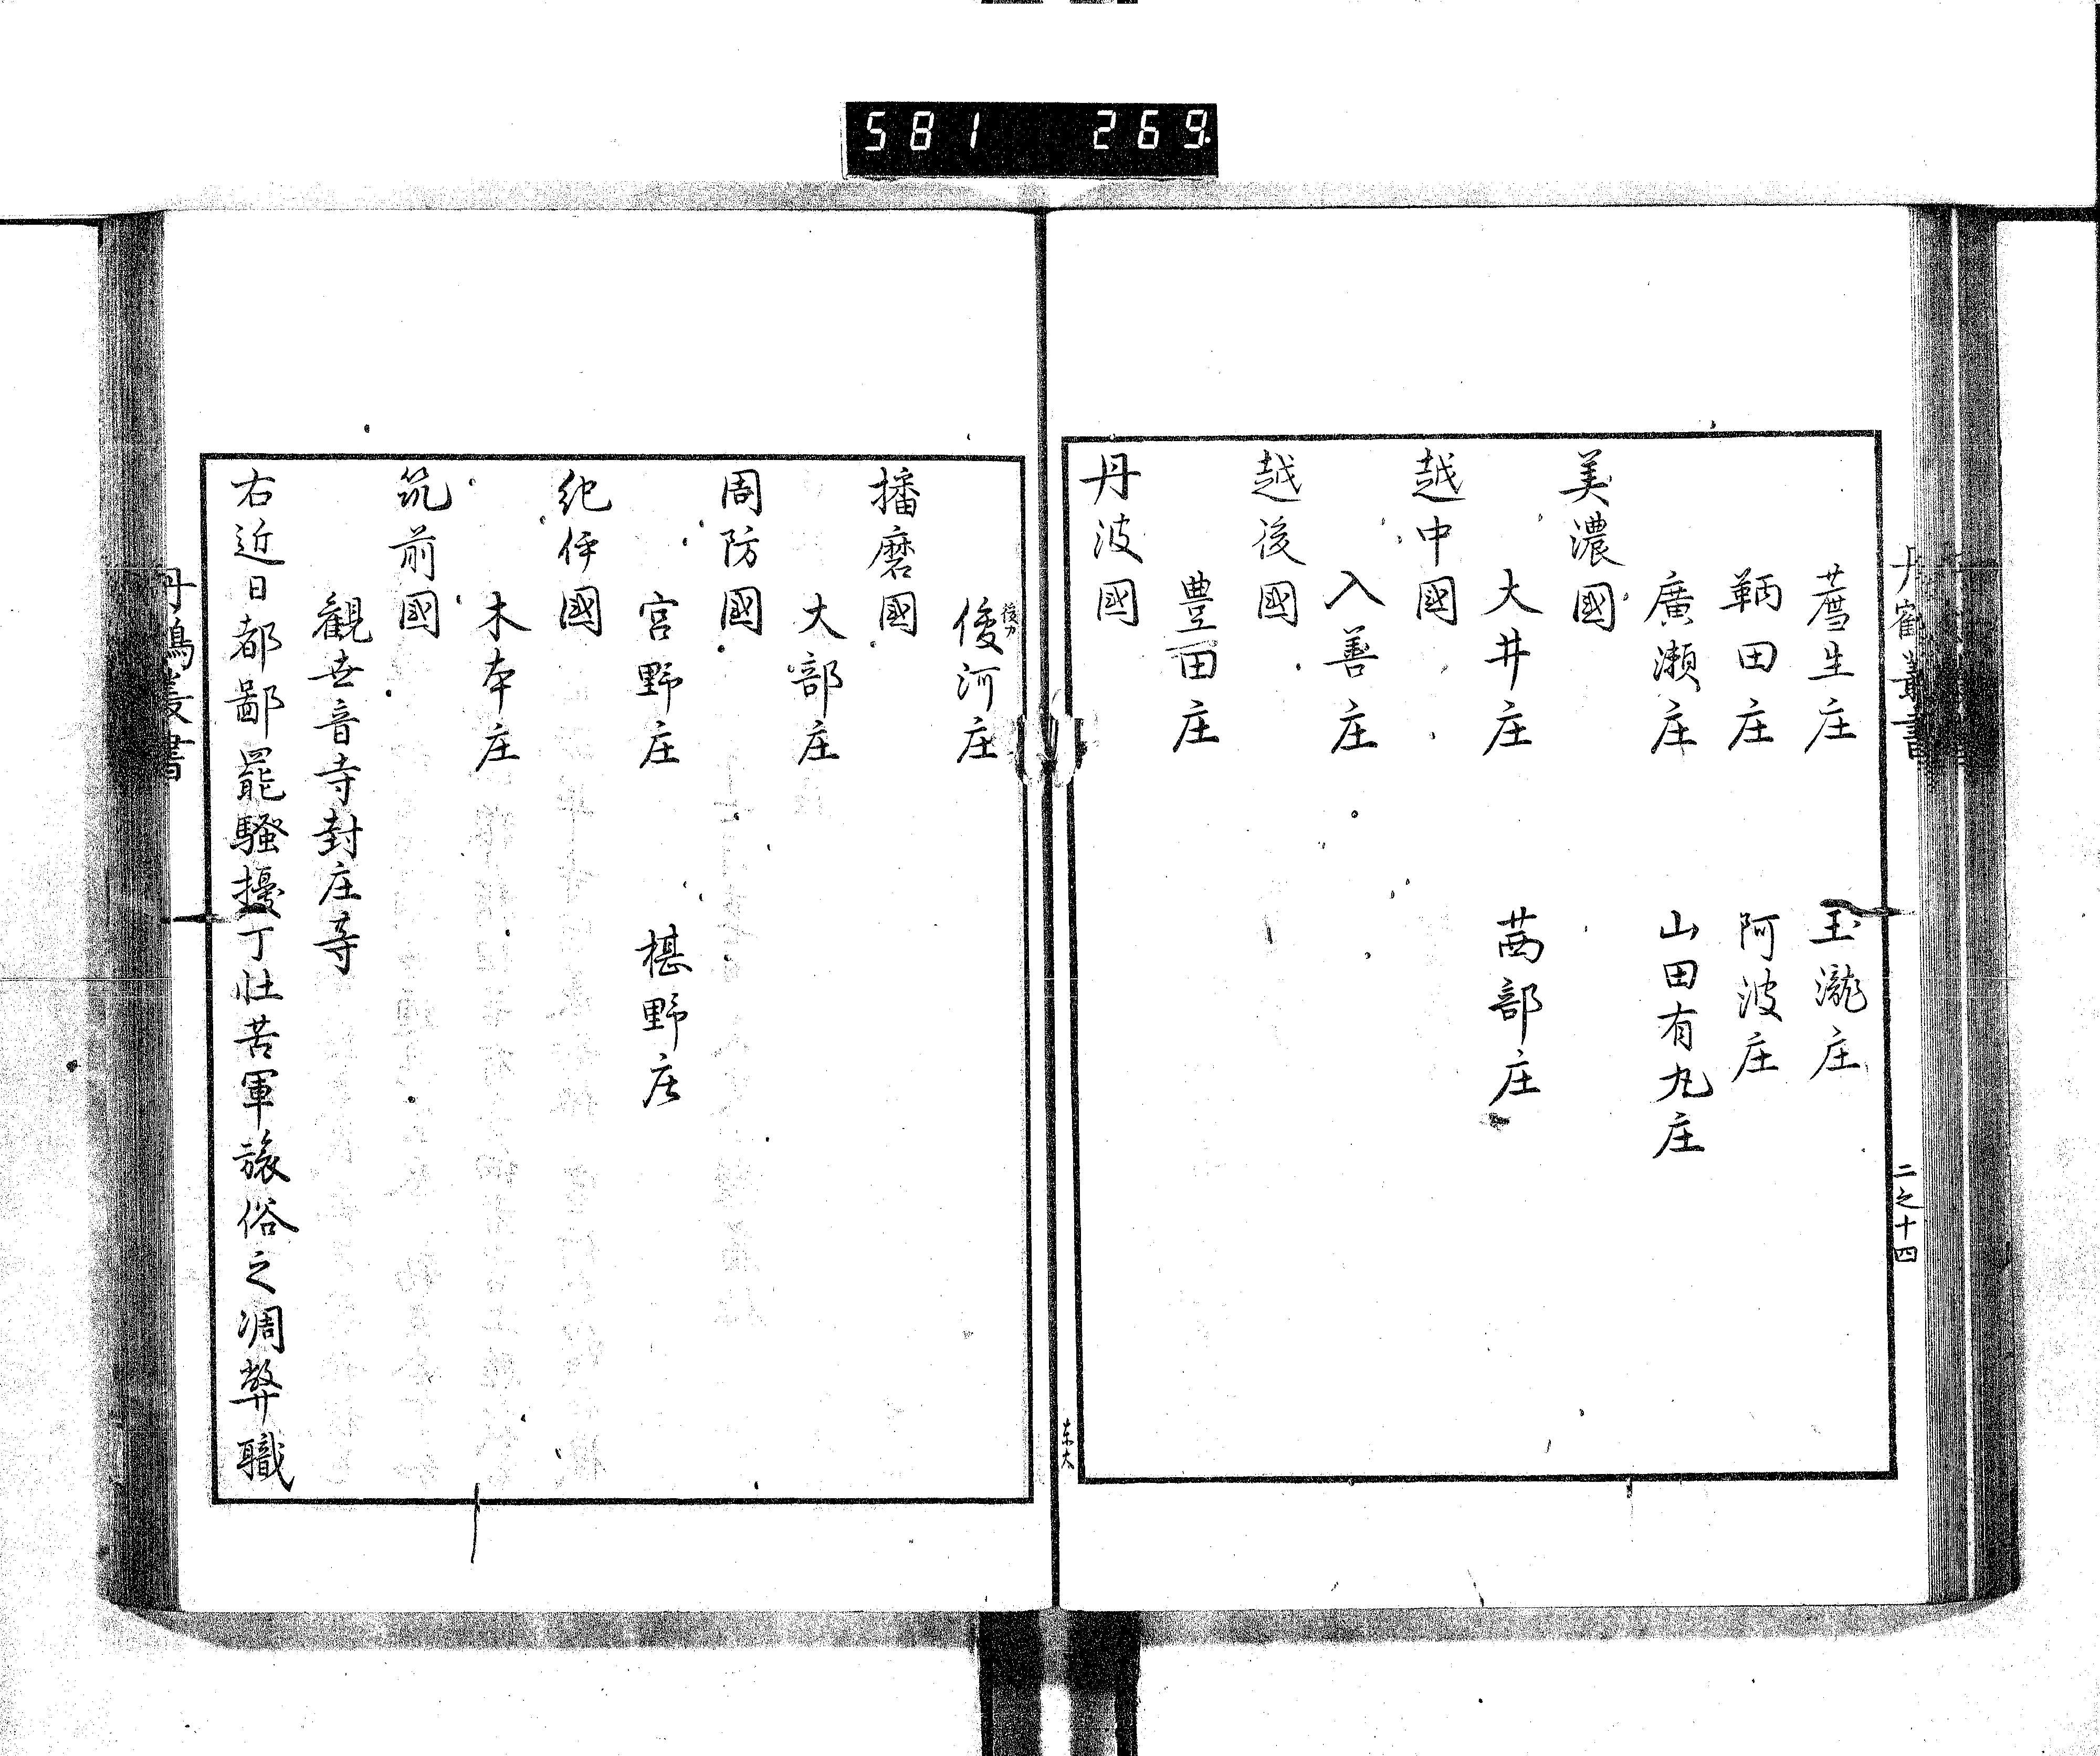 581 269
丹鶴叢書
二之十四
薦生庄 玉瀧庄
鞆田庄 阿波庄
廣瀬庄 山田有丸庄
美濃國
大井庄 茜部庄
越中國
入善庄
越後國
豊田庄
丹波國
东大
後カ
俊河庄
播磨國
大部庄
周防國
宮野庄 椹野庄
紀伊國
木本庄
筑前國
觀世音寺封庄等
右近日都鄙罷騒擾丁壯苦軍旅俗之凋弊職
丹鶴叢書